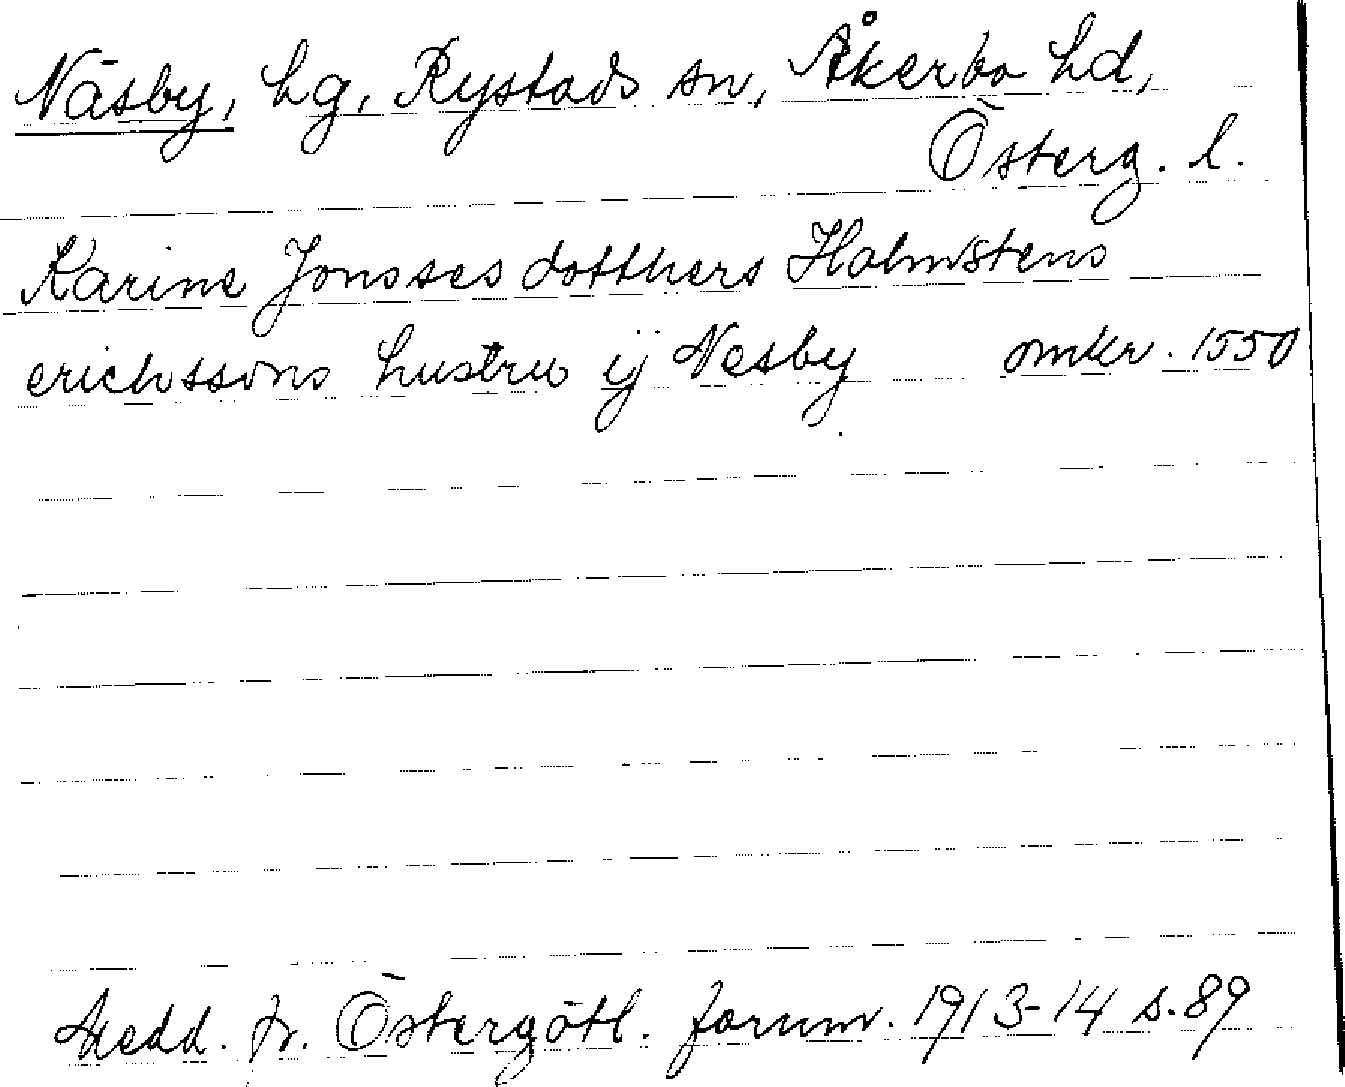 Näsby, hg, Rystads sn, Åkerbo hd,
Österg. l.
Karine Jonsses dotthers Holmstens
erichssons hustru ij Nesby omkr. 1550
Medd. fr. Östergötl. fornm. 1913-14 s. 89